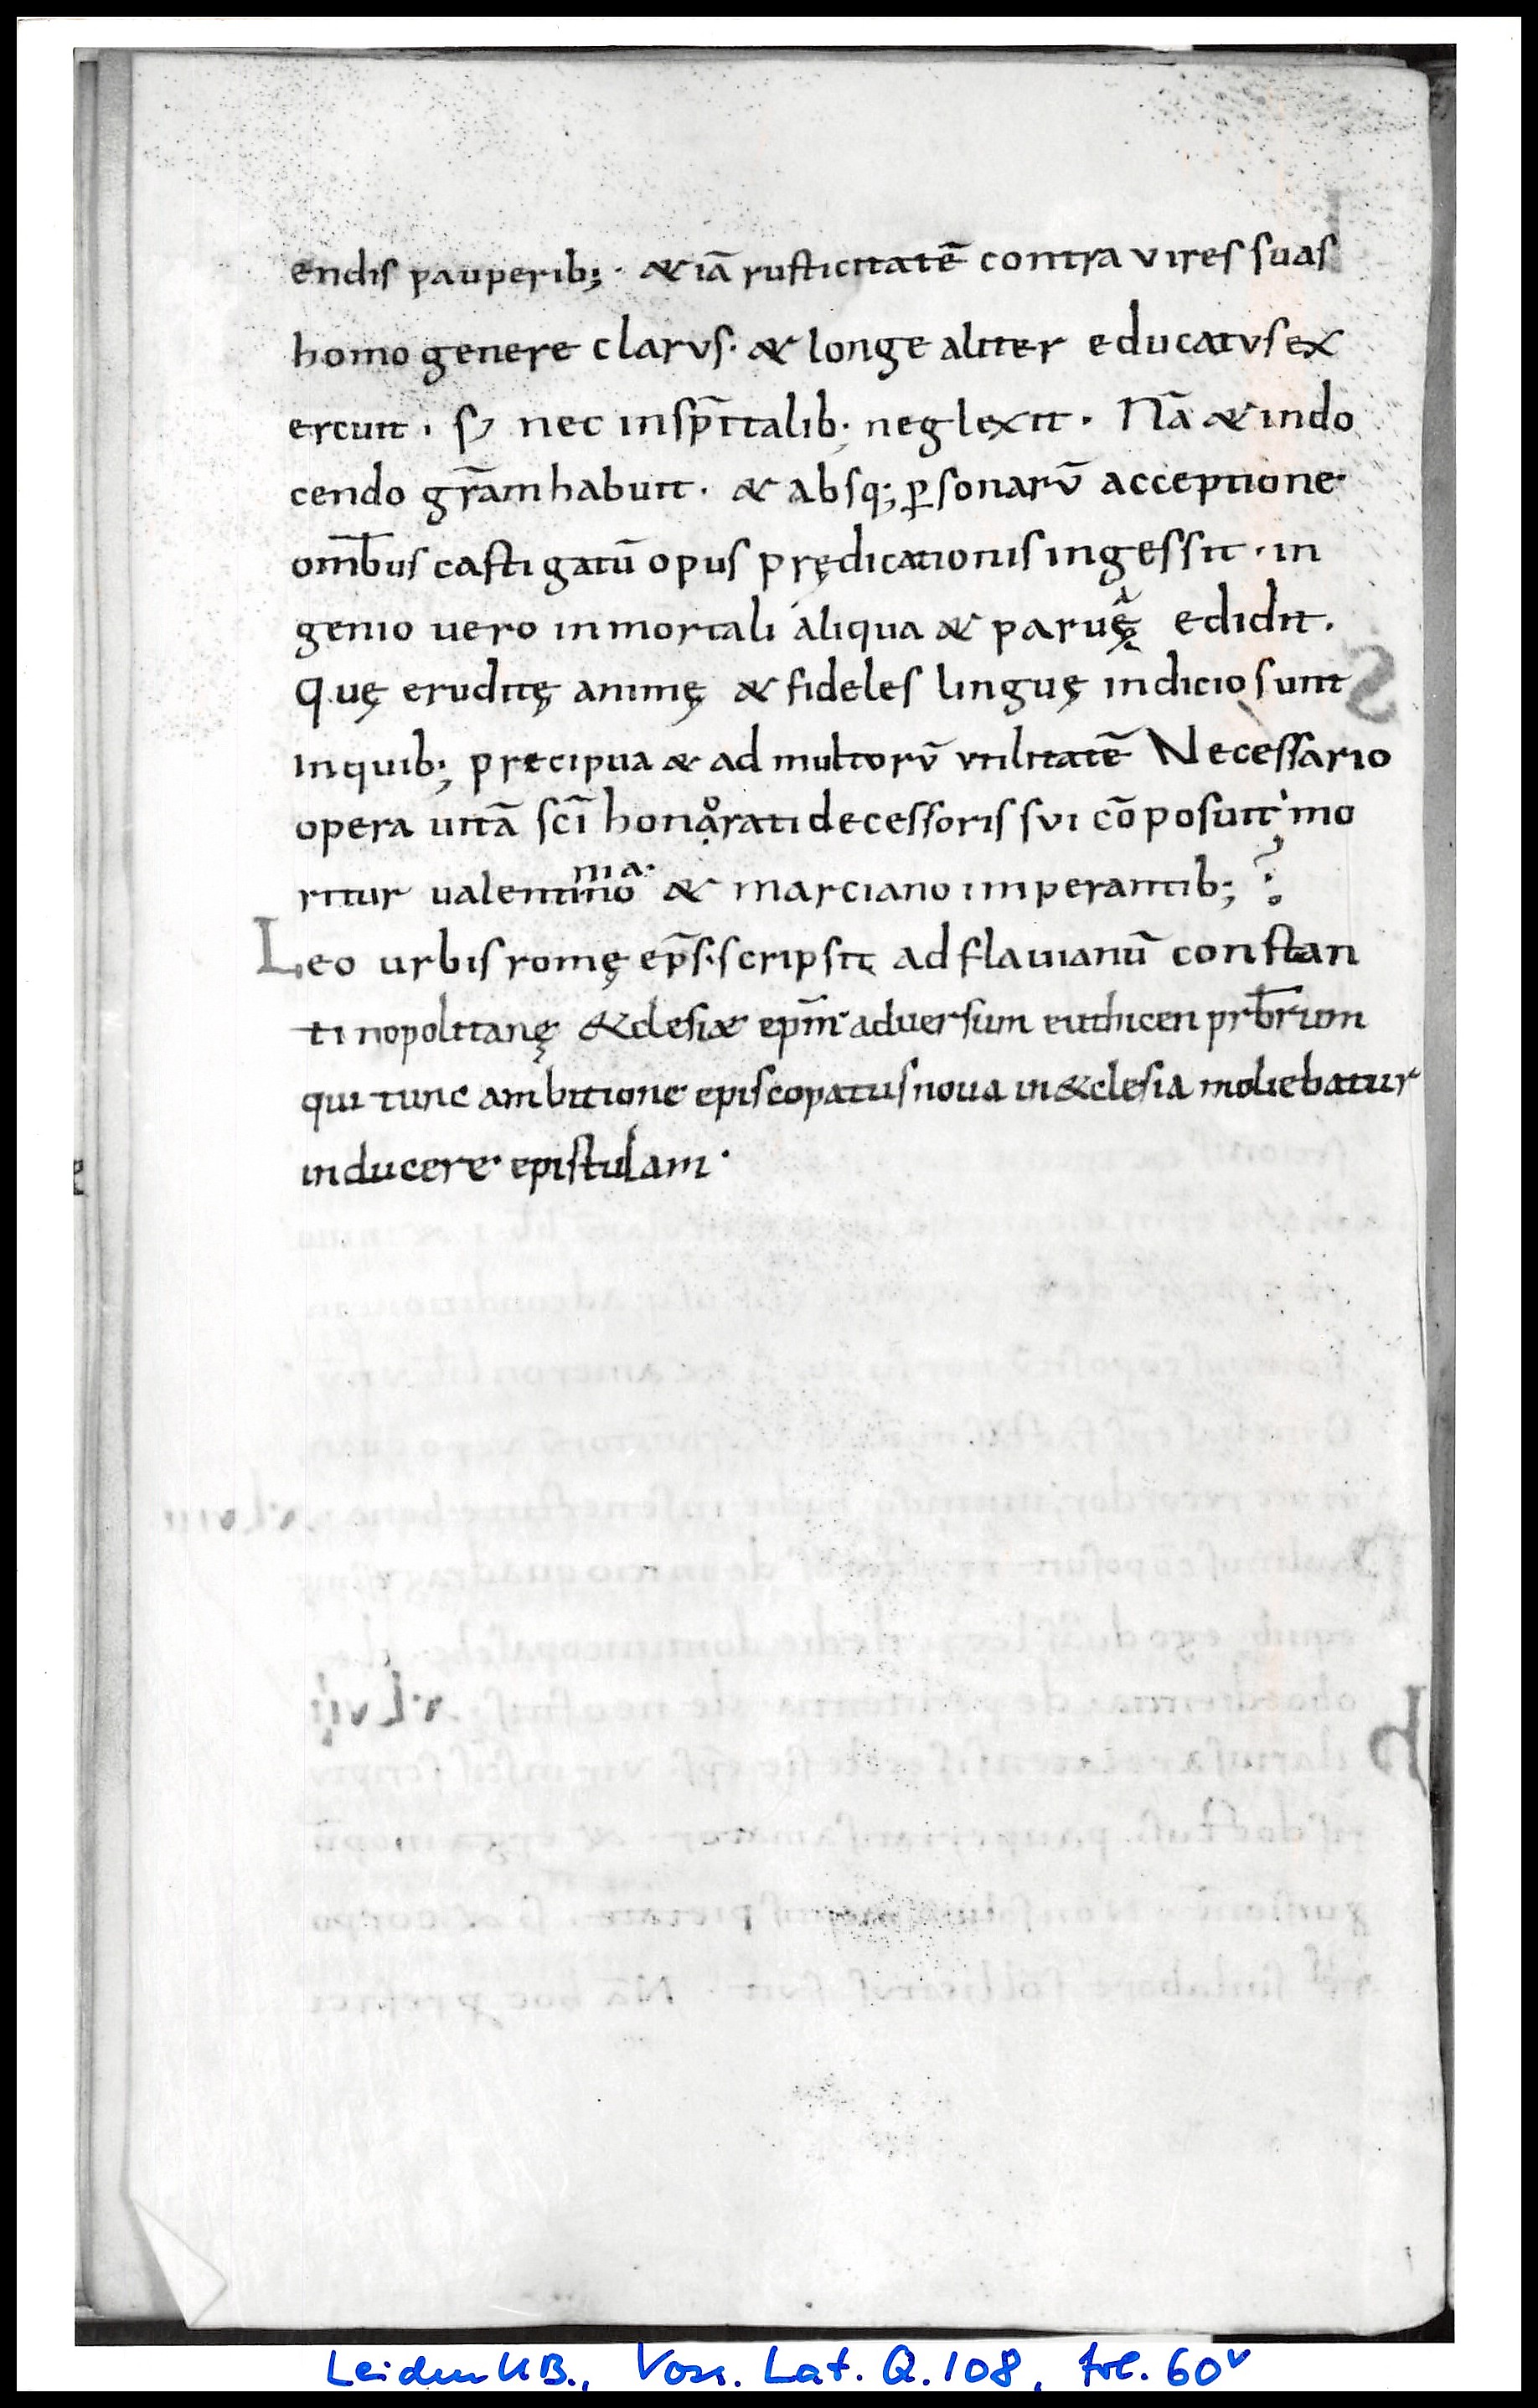 endis pauperib; · & iā rusticitatē contra vires suas
homo genere clarvs · & longe aliter educatvs ex
ercuit · s; nec in sp̄italib; neglexit · Nā & in do
cendo gr̄am habuit · & absq; ꝑsonarv̄ acceptione
om̄bus castigatū opus prędicationis ingessit · in
genio uero inmortali aliqua & paruę edidit.
Quę eruditę animę & fideles linguę indicio sunt
in quib; precipua & ad multorv̄ vtilitatē Necessario
opera uitā sc̄i honorati decessoris svi cōposuit mo
ritur ualentiniano & marciano imperantib;
Leo urbis romę ep̄s · scripsit ad flauianū constan
tinopolitanę &clesiæ ep̄m aduersum euthicen prb̄rum
qui tunc ambitione episcopatus noua in &clesia moliebatur
inducere epistulam ·
Leiden UB., Voss. Lat. Q. 108, fol. 60v